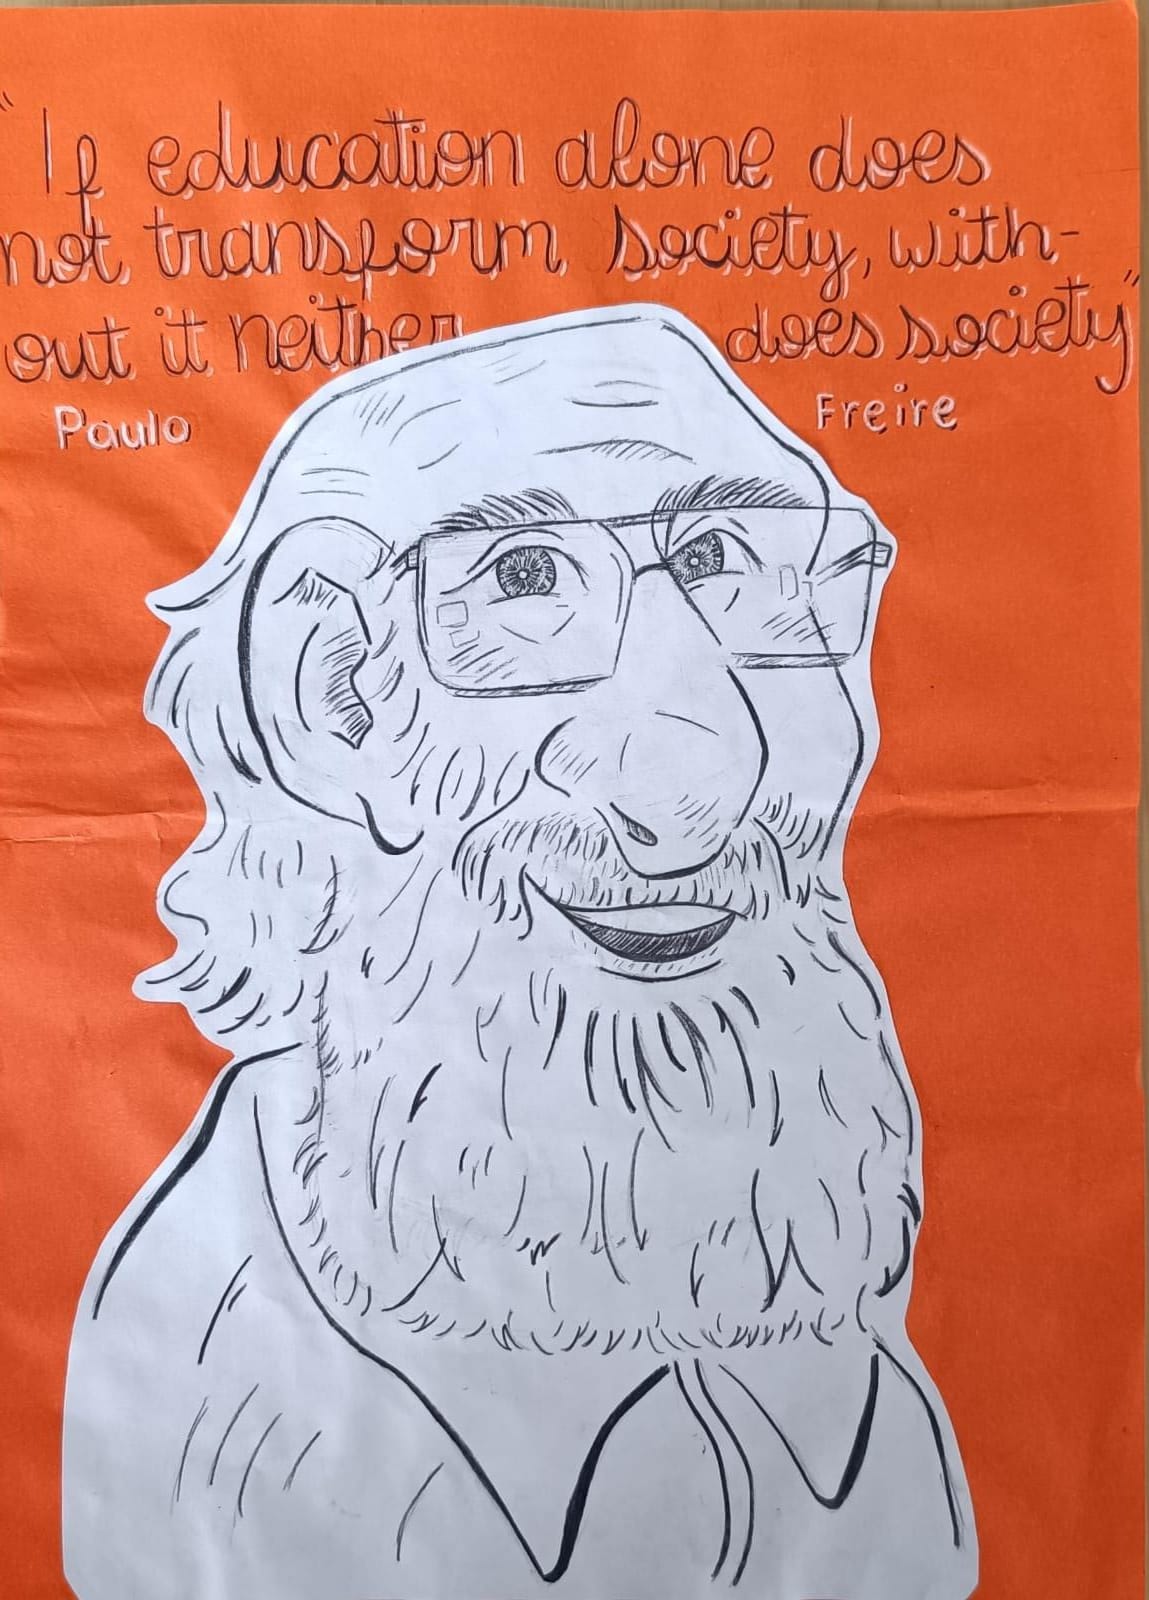 "If education alone does
not transform society, with-
out it neither does society"
Paulo Freire